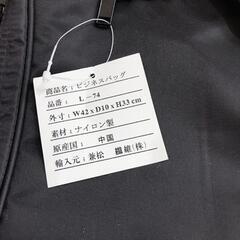 商品名：ビジネスバッグ
品番：L－74
外寸：W42 x D10 x H33 cm
素材：ナイロン製
原産国：中国
輸入元：兼松 繊維(株)